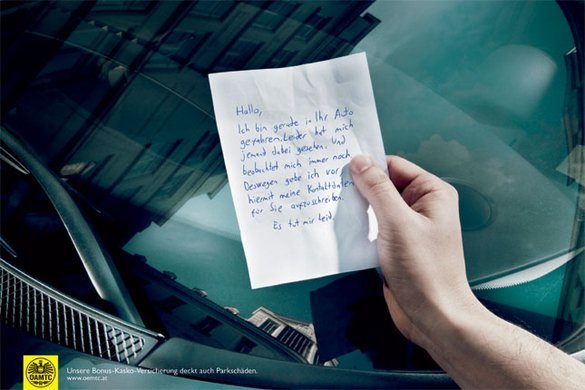 Hallo,
Ich bin gerade in Ihr Auto
gefahren. Leider hat mich
jemand dabei gesehen. Und
beobachtet mich immer noch.
Deswegen gebe ich vor
hiermit meine Kontaktdaten
für Sie aufzuschreiben.
Es tut mir leid.
ÖAMTC
Unsere Bonus-Kasko-Versicherung deckt auch Parkschäden.
www.oeamtc.at